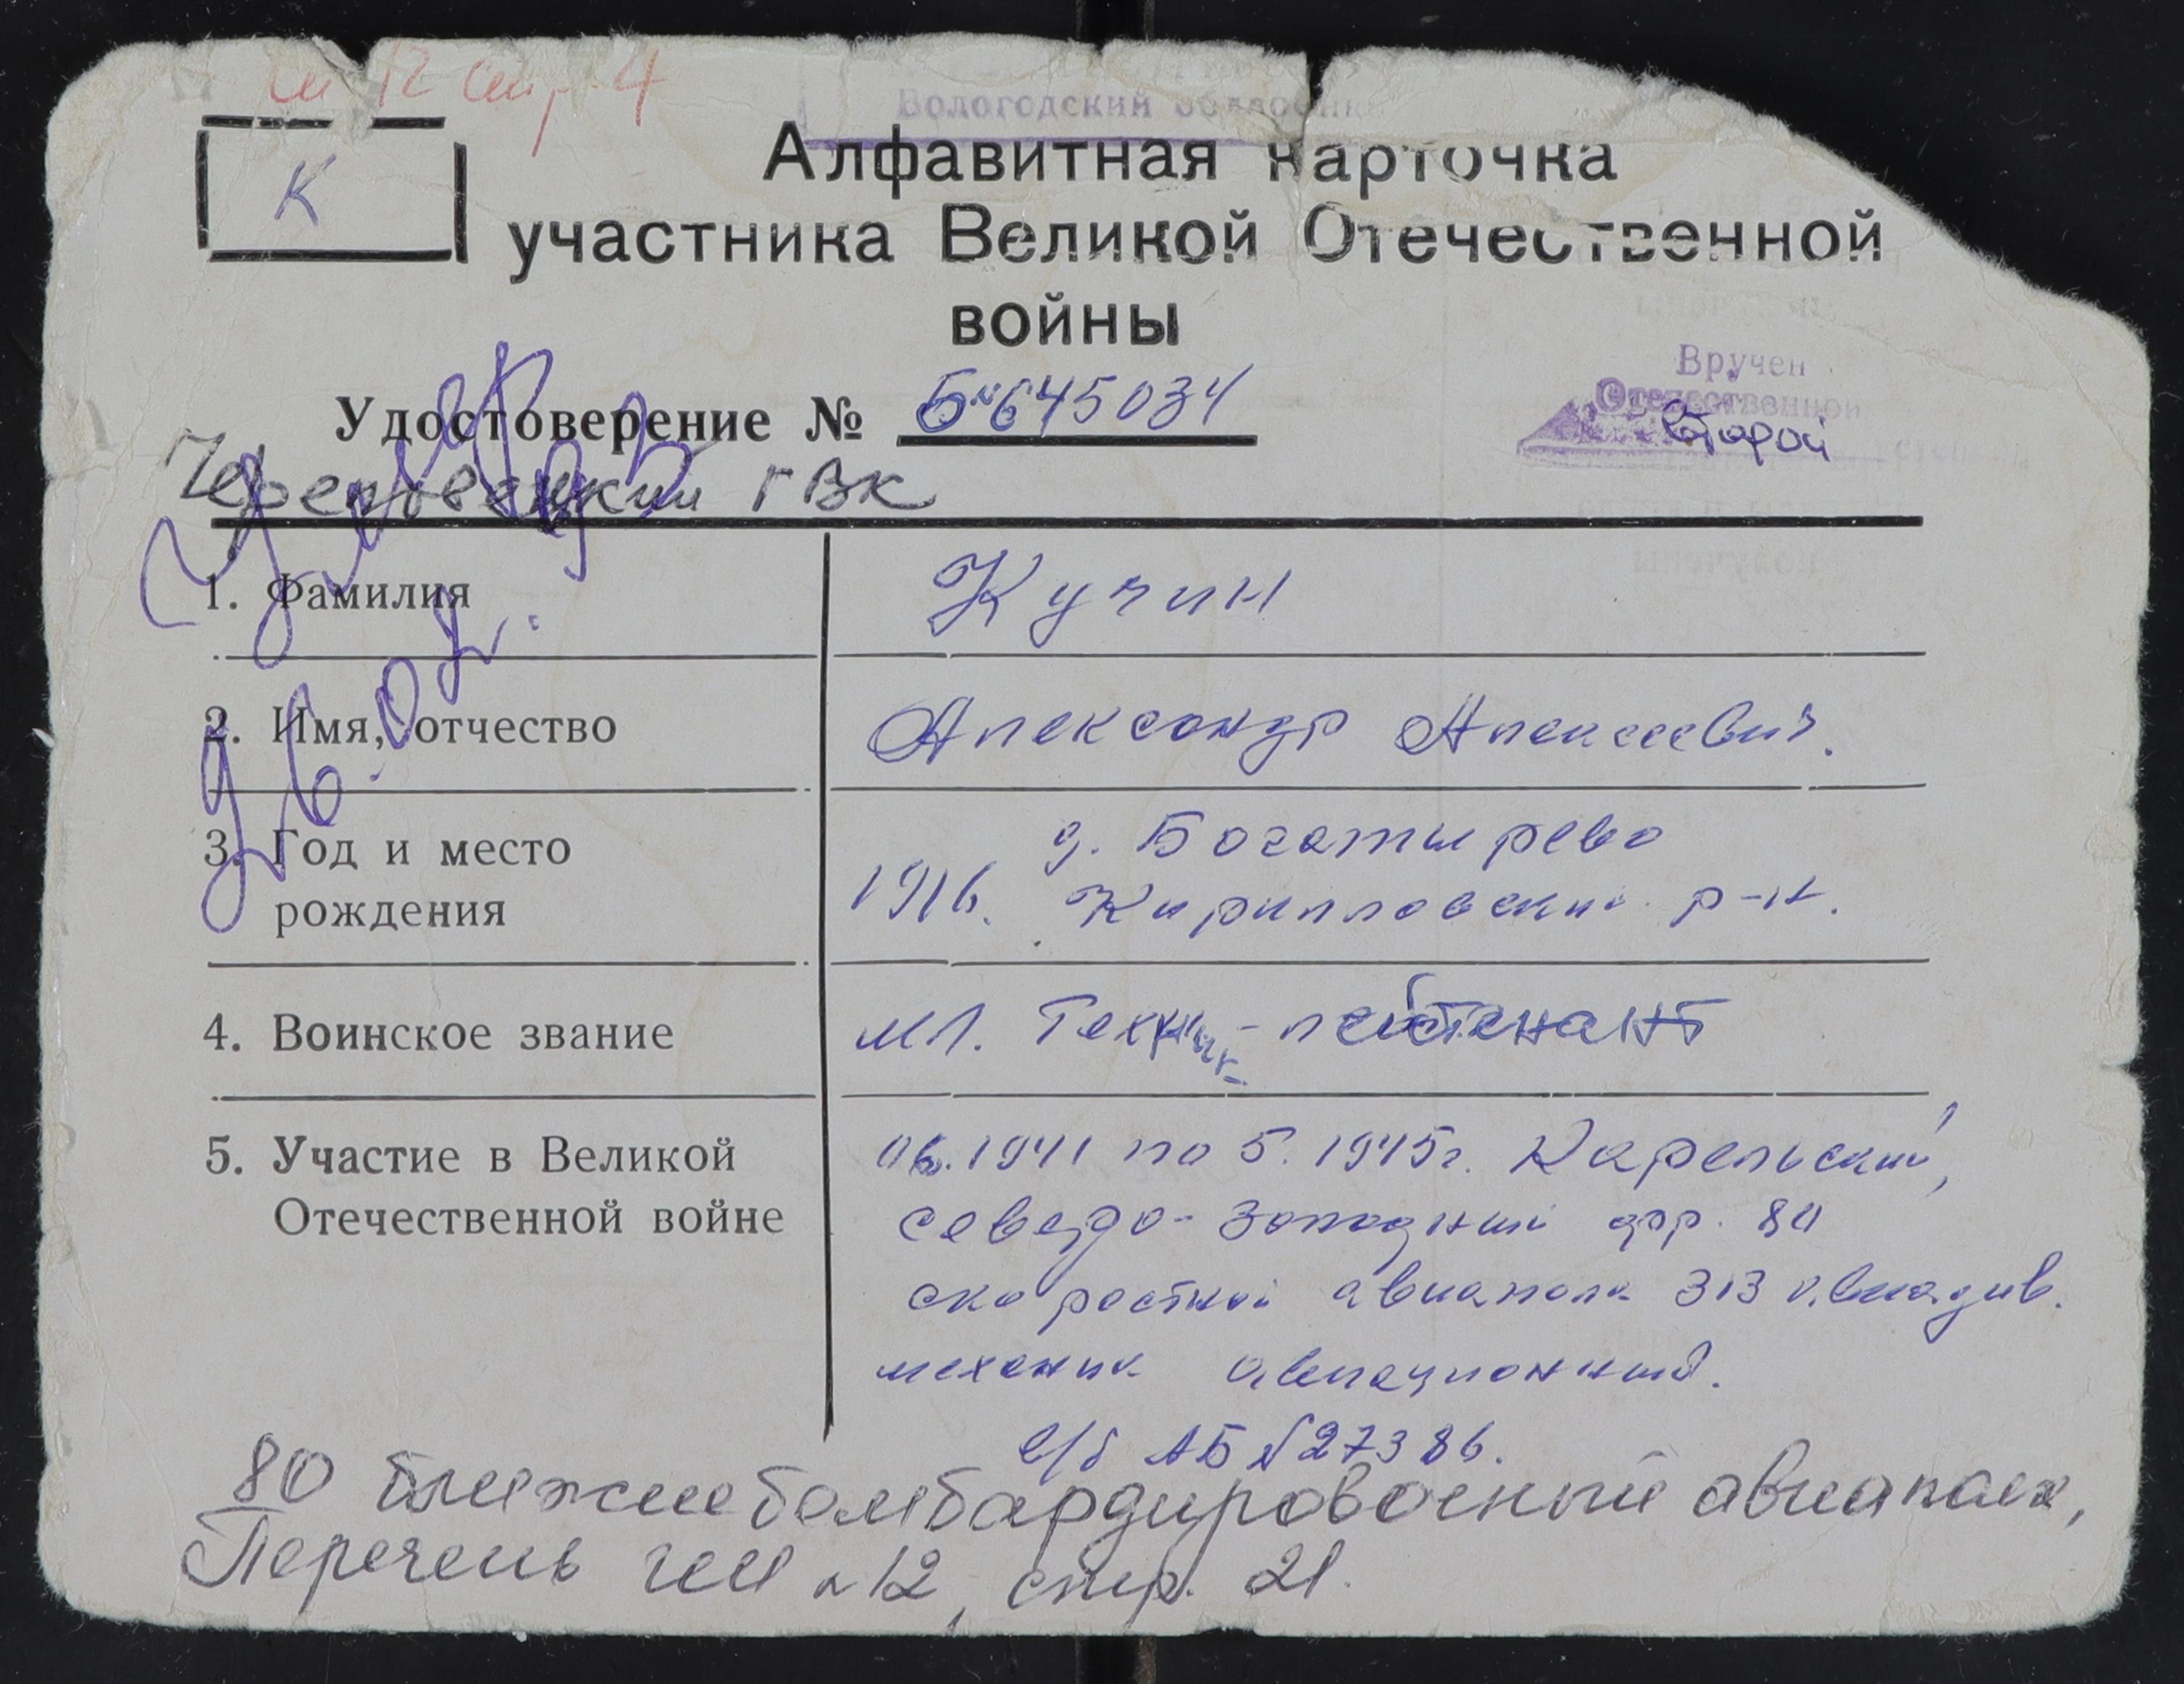 12 стр. 4
Вологодский облвоен
К
Алфавитная карточка
участника Великой Отечественной
войны
Вручен
Отечественной
Второй
Удостоверение № Б №645034
Череповецкий ГВК
Умер
1. Фамилия Кучин
2. Имя, отчество Александр Алексеевич.
3. Год и место рождения 1916. д. Богатырево
Кирилловский р-н.
4. Воинское звание мл. Техник-лейтенант
5. Участие в Великой Отечественной войне 06.1941 по 5.1945г. Карельский,
северо-западный фр. 80
скоростной авиаполк 313 авиадив.
механик авиационный.
в/б АБ №27386.
80 ближнебомбардировочный авиаполк,
Перечень ГШ №12, стр. 21.